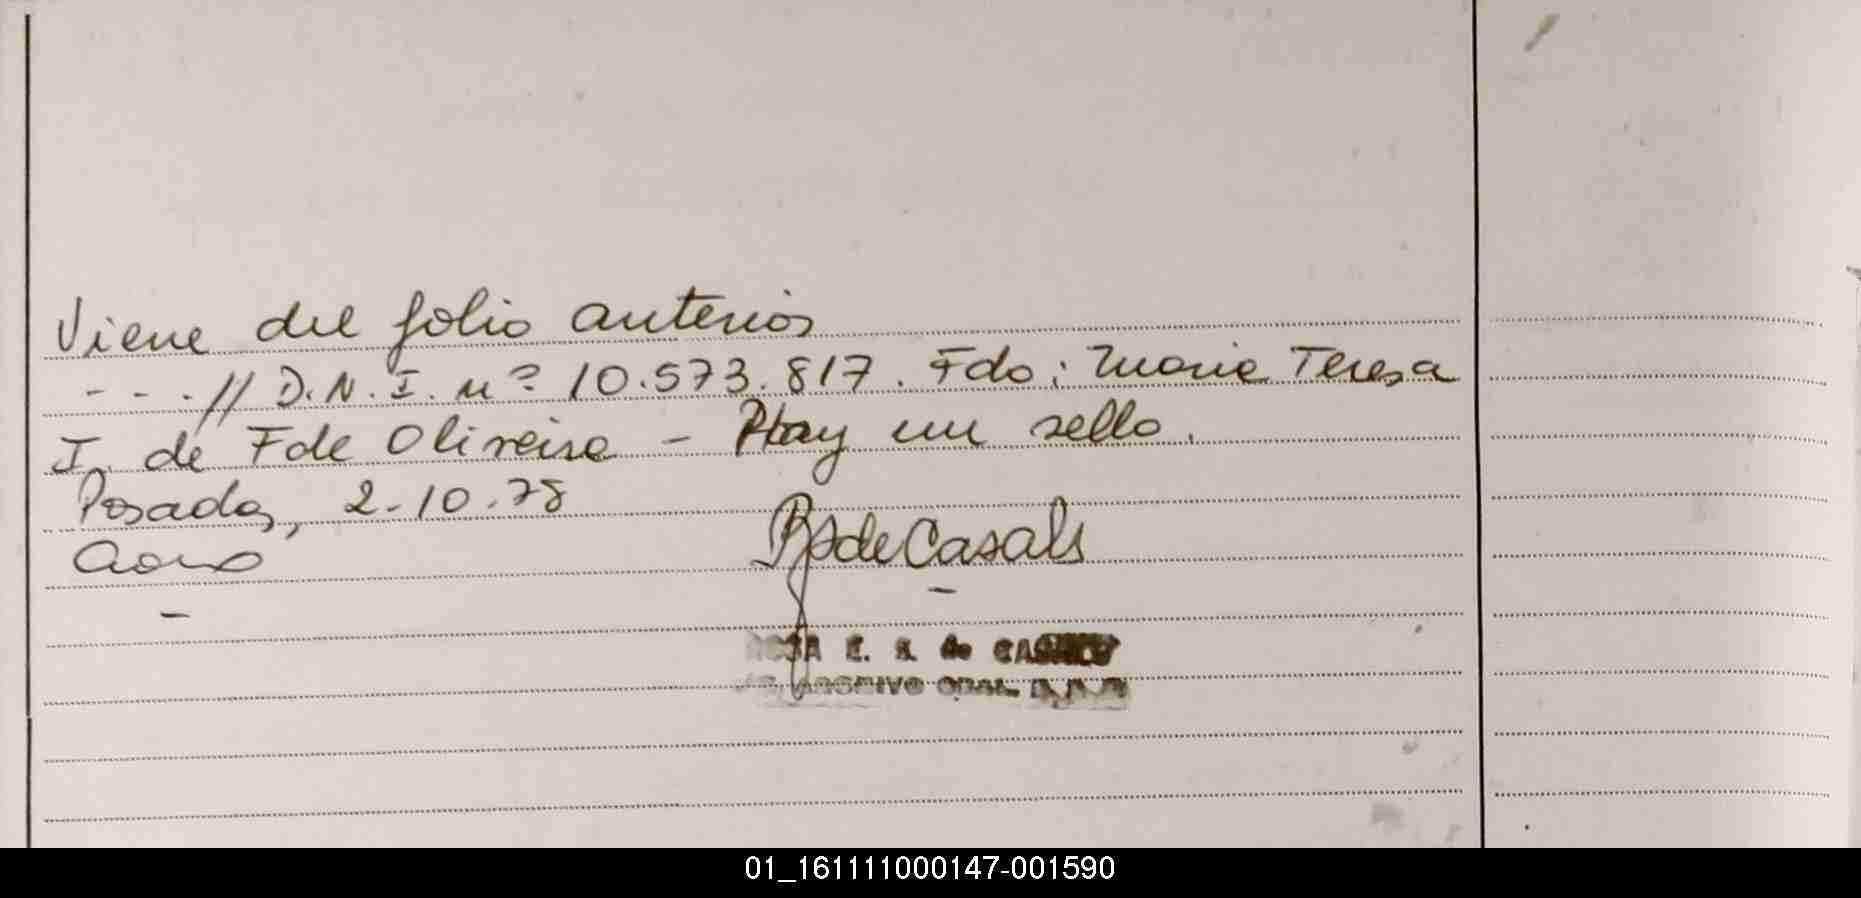 Viene del folio anterior
- - - // D.N.I. nº 10.573.817. Fdo: Maria Teresa
I. de F de Oliveira - Hay un sello.
Posadas, 2-10-78
RS de Casals
E. S. de
ARCHIVO GRAL.
01_161111000147-001590